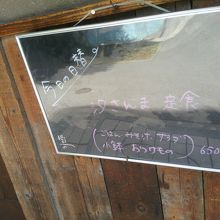 今日の日替。
さんま 定食
(ごはん みそ汁 サラダ
小鉢 おつけもの) 650